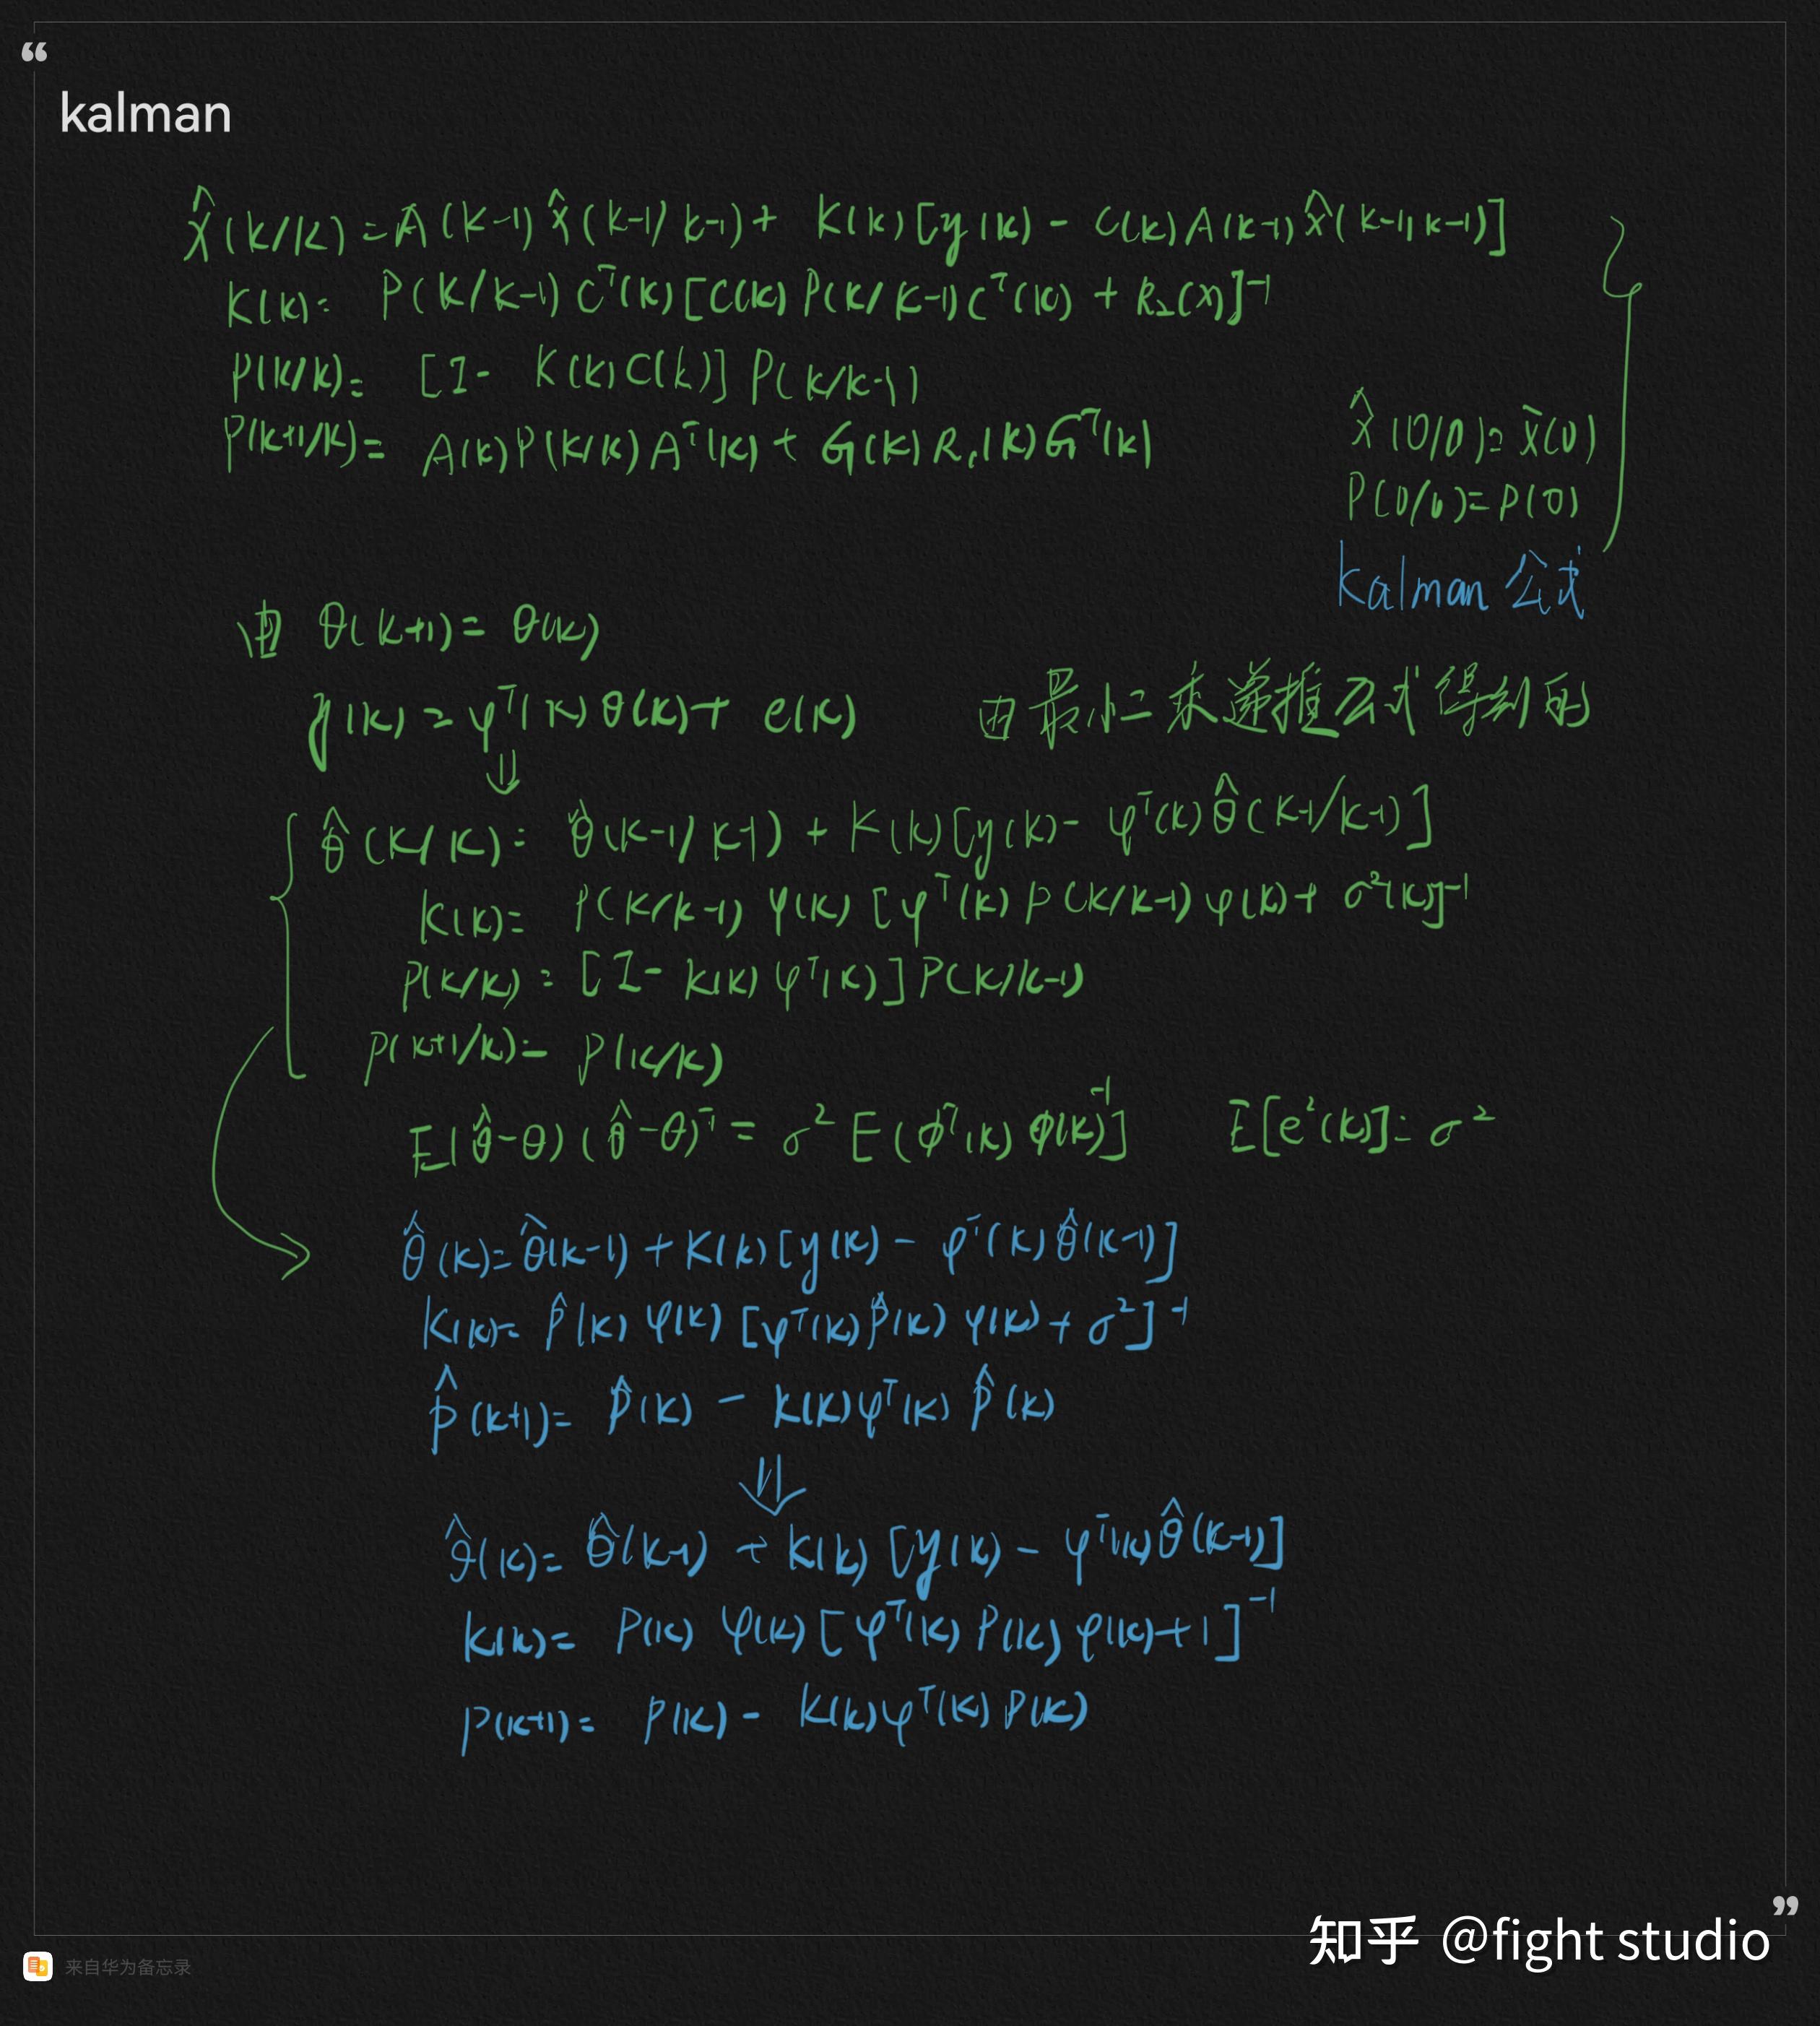 “
kalman
X̂(k/k) = A(k-1) x̂(k-1/k-1) + K(k) [y(k) - C(k) A(k-1) x̂(k-1, k-1)]
K(k) = P(k/k-1) Cᵀ(k) [C(k) P(k/k-1) Cᵀ(k) + R₂(x)]⁻¹
P(k/k) = [I - K(k) C(k)] P(k/k-1)
P(k+1/k) = A(k) P(k/k) Aᵀ(k) + G(k) R₁(k) Gᵀ(k)
X̂(0/0) = x̄(0)
P(0/0) = P(0)
kalman 公式
由 θ(k+1) = θ(k)
y(k) = φᵀ(k) θ(k) + e(k) 由最小二乘递推公式得到的
⇓
θ̂(k/k) = θ̂(k-1/k-1) + K(k) [y(k) - φᵀ(k) θ̂(k-1/k-1)]
K(k) = P(k/k-1) φ(k) [φᵀ(k) P(k/k-1) φ(k) + σ²(k)]⁻¹
P(k/k) = [I - K(k) φᵀ(k)] P(k/k-1)
P(k+1/k) = P(k/k)
E(θ̂-θ)(θ̂-θ)ᵀ = σ² E(Φᵀ(k) Φ(k)⁻¹] E[e²(k)] = σ²
θ̂(k) = θ̂(k-1) + K(k) [y(k) - φᵀ(k) θ̂(k-1)]
K(k) = P̂(k) φ(k) [φᵀ(k) P̂(k) φ(k) + σ²]⁻¹
P̂(k+1) = P̂(k) - K(k) φᵀ(k) P̂(k)
⇓
θ̂(k) = θ̂(k-1) + K(k) [y(k) - φᵀ(k) θ̂(k-1)]
K(k) = P(k) φ(k) [φᵀ(k) P(k) φ(k) + 1]⁻¹
P(k+1) = P(k) - K(k) φᵀ(k) P(k)
”
知乎 @fight studio
来自华为备忘录